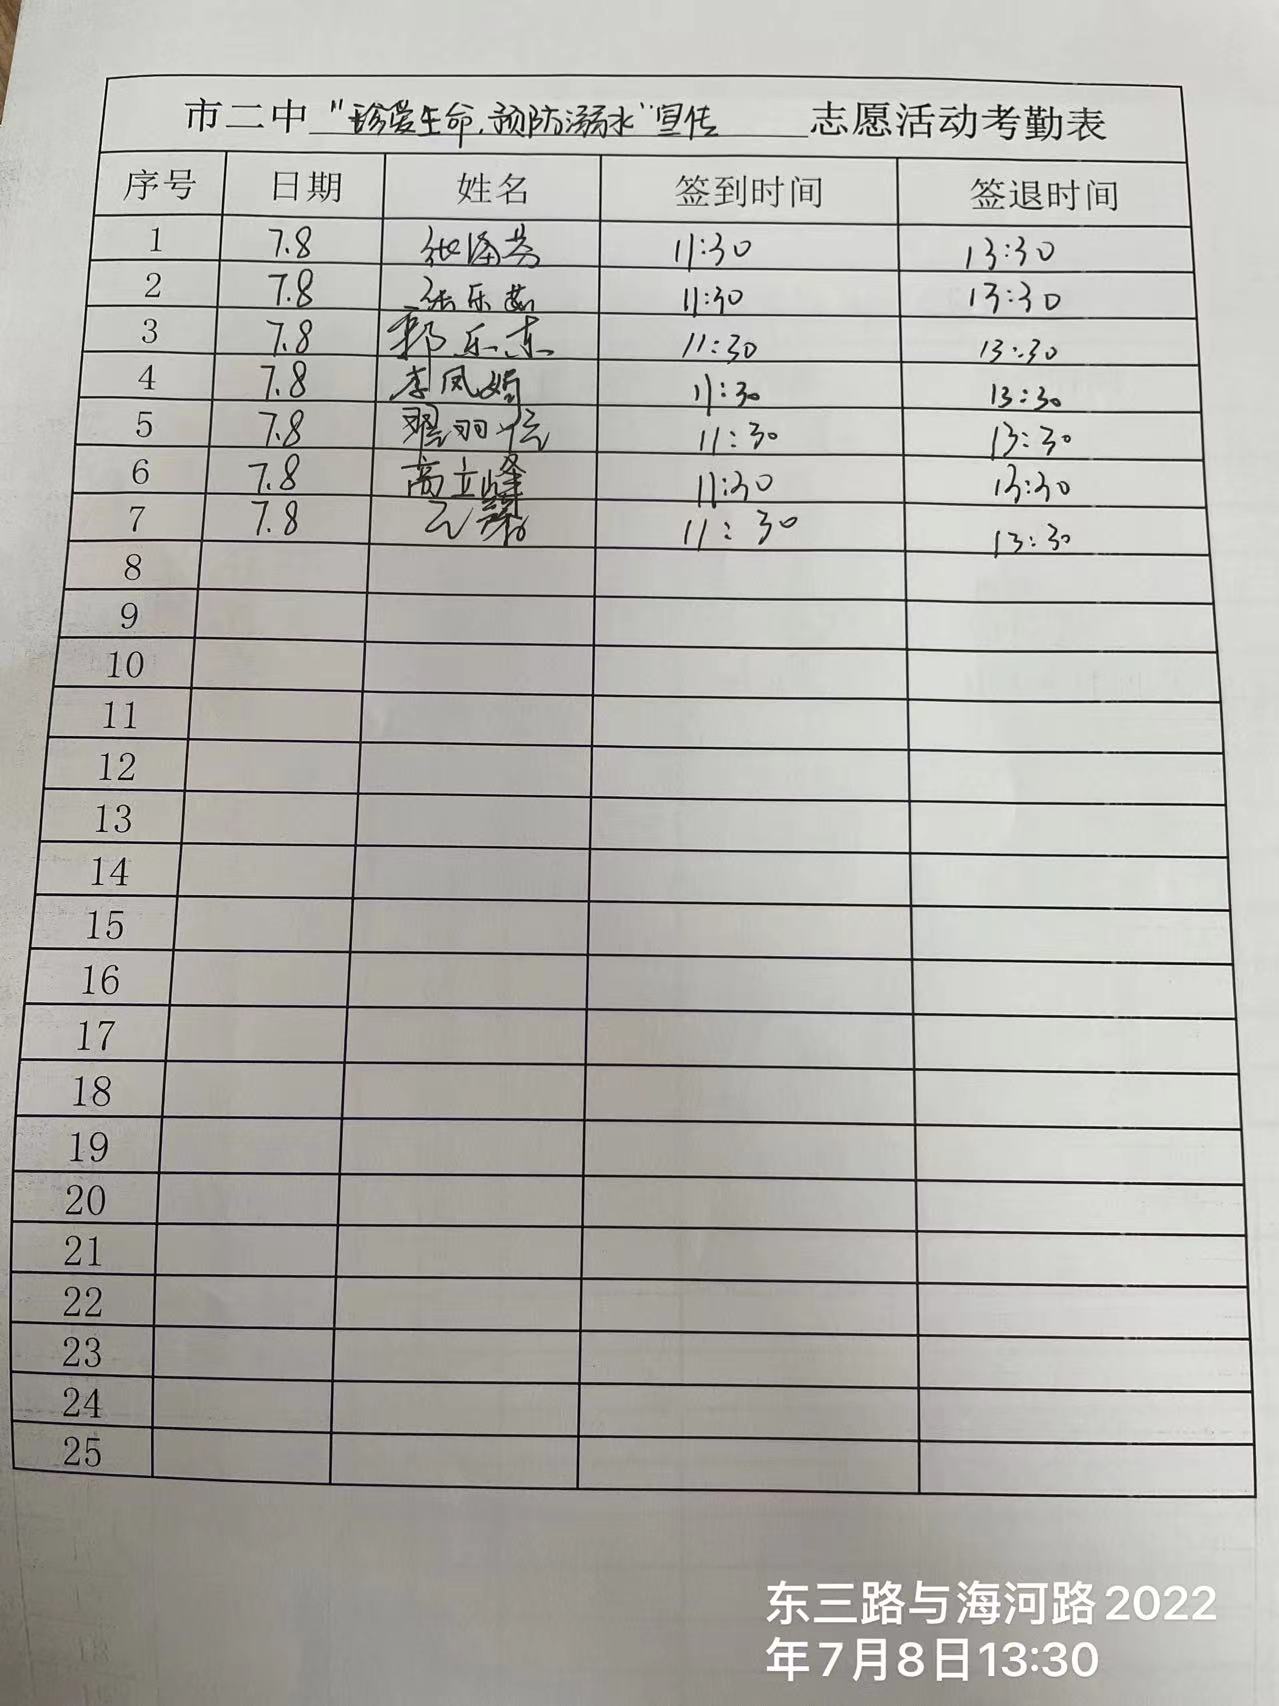 市二中 "珍爱生命,预防溺水"宣传 志愿活动考勤表
序号 日期 姓名 签到时间 签退时间
1 7.8 11:30 13:30
2 7.8 张乐茹 11:30 13:30
3 7.8 郭乐东 11:30 13:30
4 7.8 李凤娟 11:30 13:30
5 7.8 11:30 13:30
6 7.8 高立峰 11:30 13:30
7 7.8 11:30 13:30
8
9
10
11
12
13
14
15
16
17
18
19
20
21
22
23
24
25
东三路与海河路2022
年7月8日13:30